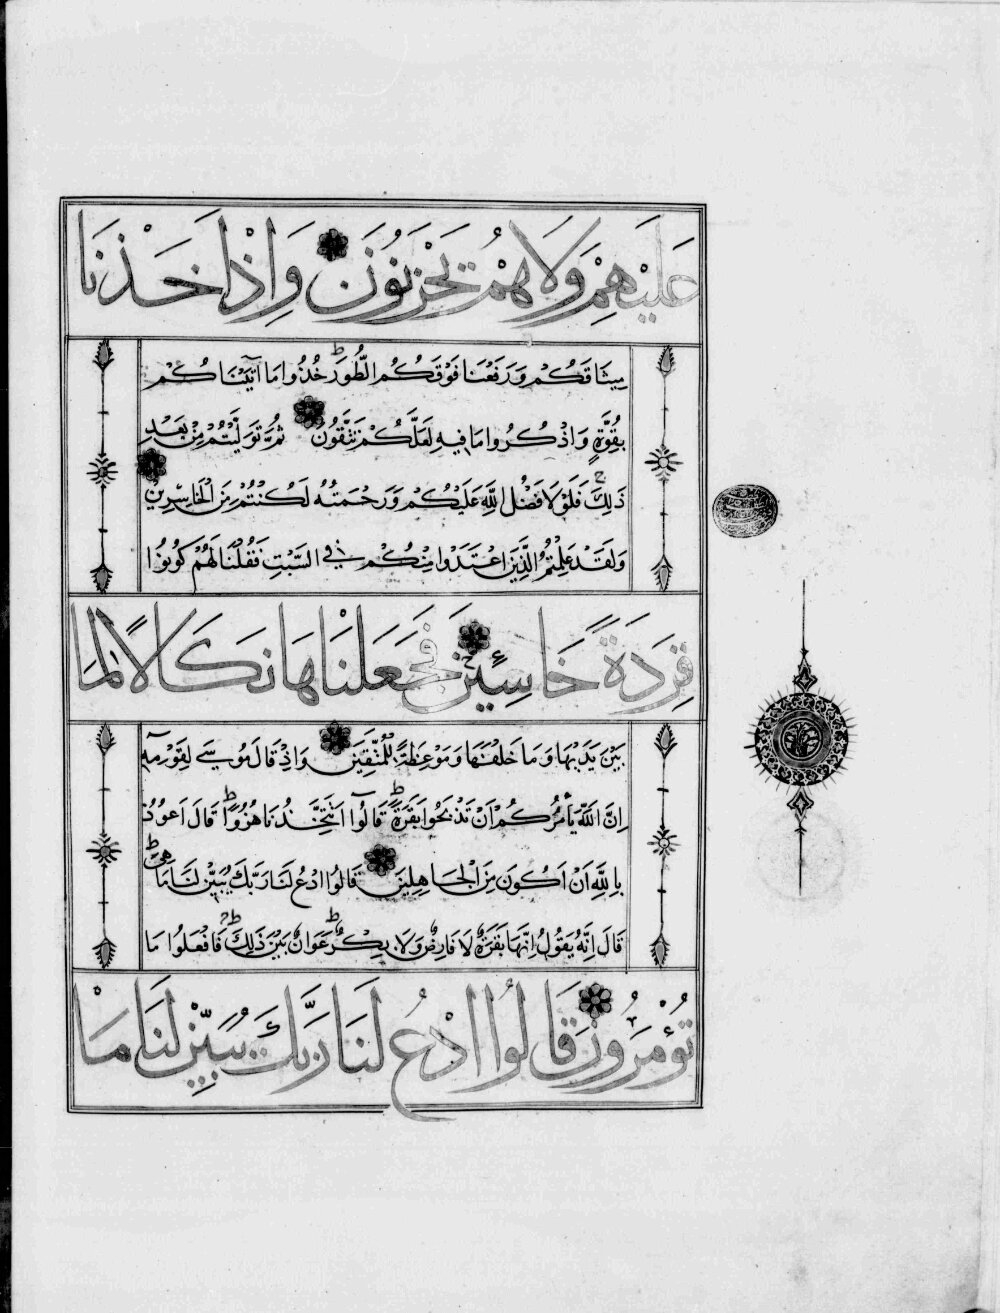 عَلَيْهِمْ وَلَا هُمْ يَحْزَنُونَ وَاِذْ اَخَذْنَا
مِيثَاقَكُمْ وَرَفَعْنَا فَوْقَكُمُ الطُّورَ خُذُوا مَا آتَيْنَاكُمْ
بِقُوَّةٍ وَاذْكُرُوا مَا فِيهِ لَعَلَّكُمْ تَتَّقُونَ ثُمَّ تَوَلَّيْتُمْ مِنْ بَعْدِ
ذَلِكَ فَلَوْلَا فَضْلُ اللَّهِ عَلَيْكُمْ وَرَحْمَتُهُ لَكُنْتُمْ مِنَ الْخَاسِرِينَ
وَلَقَدْ عَلِمْتُمُ الَّذِينَ اعْتَدَوْا مِنْكُمْ فِي السَّبْتِ فَقُلْنَا لَهُمْ كُونُوا
قِرَدَةً خَاسِئِينَ فَجَعَلْنَاهَا نَكَالًا لِمَا
بَيْنَ يَدَيْهَا وَمَا خَلْفَهَا وَمَوْعِظَةً لِلْمُتَّقِينَ وَاِذْ قَالَ مُوسَى لِقَوْمِهِ
اِنَّ اللَّهَ يَأْمُرُكُمْ اَنْ تَذْبَحُوا بَقَرَةً قَالُوا اَتَتَّخِذُنَا هُزُوًا قَالَ اَعُوذُ
بِاللَّهِ اَنْ اَكُونَ مِنَ الْجَاهِلِينَ قَالُوا ادْعُ لَنَا رَبَّكَ يُبَيِّنْ لَنَا مَا هِيَ
قَالَ اِنَّهُ يَقُولُ اِنَّهَا بَقَرَةٌ لَا فَارِضٌ وَلَا بِكْرٌ عَوَانٌ بَيْنَ ذَلِكَ فَافْعَلُوا مَا
تُؤْمَرُونَ قَالُوا ادْعُ لَنَا رَبَّكَ يُبَيِّنْ لَنَا مَا